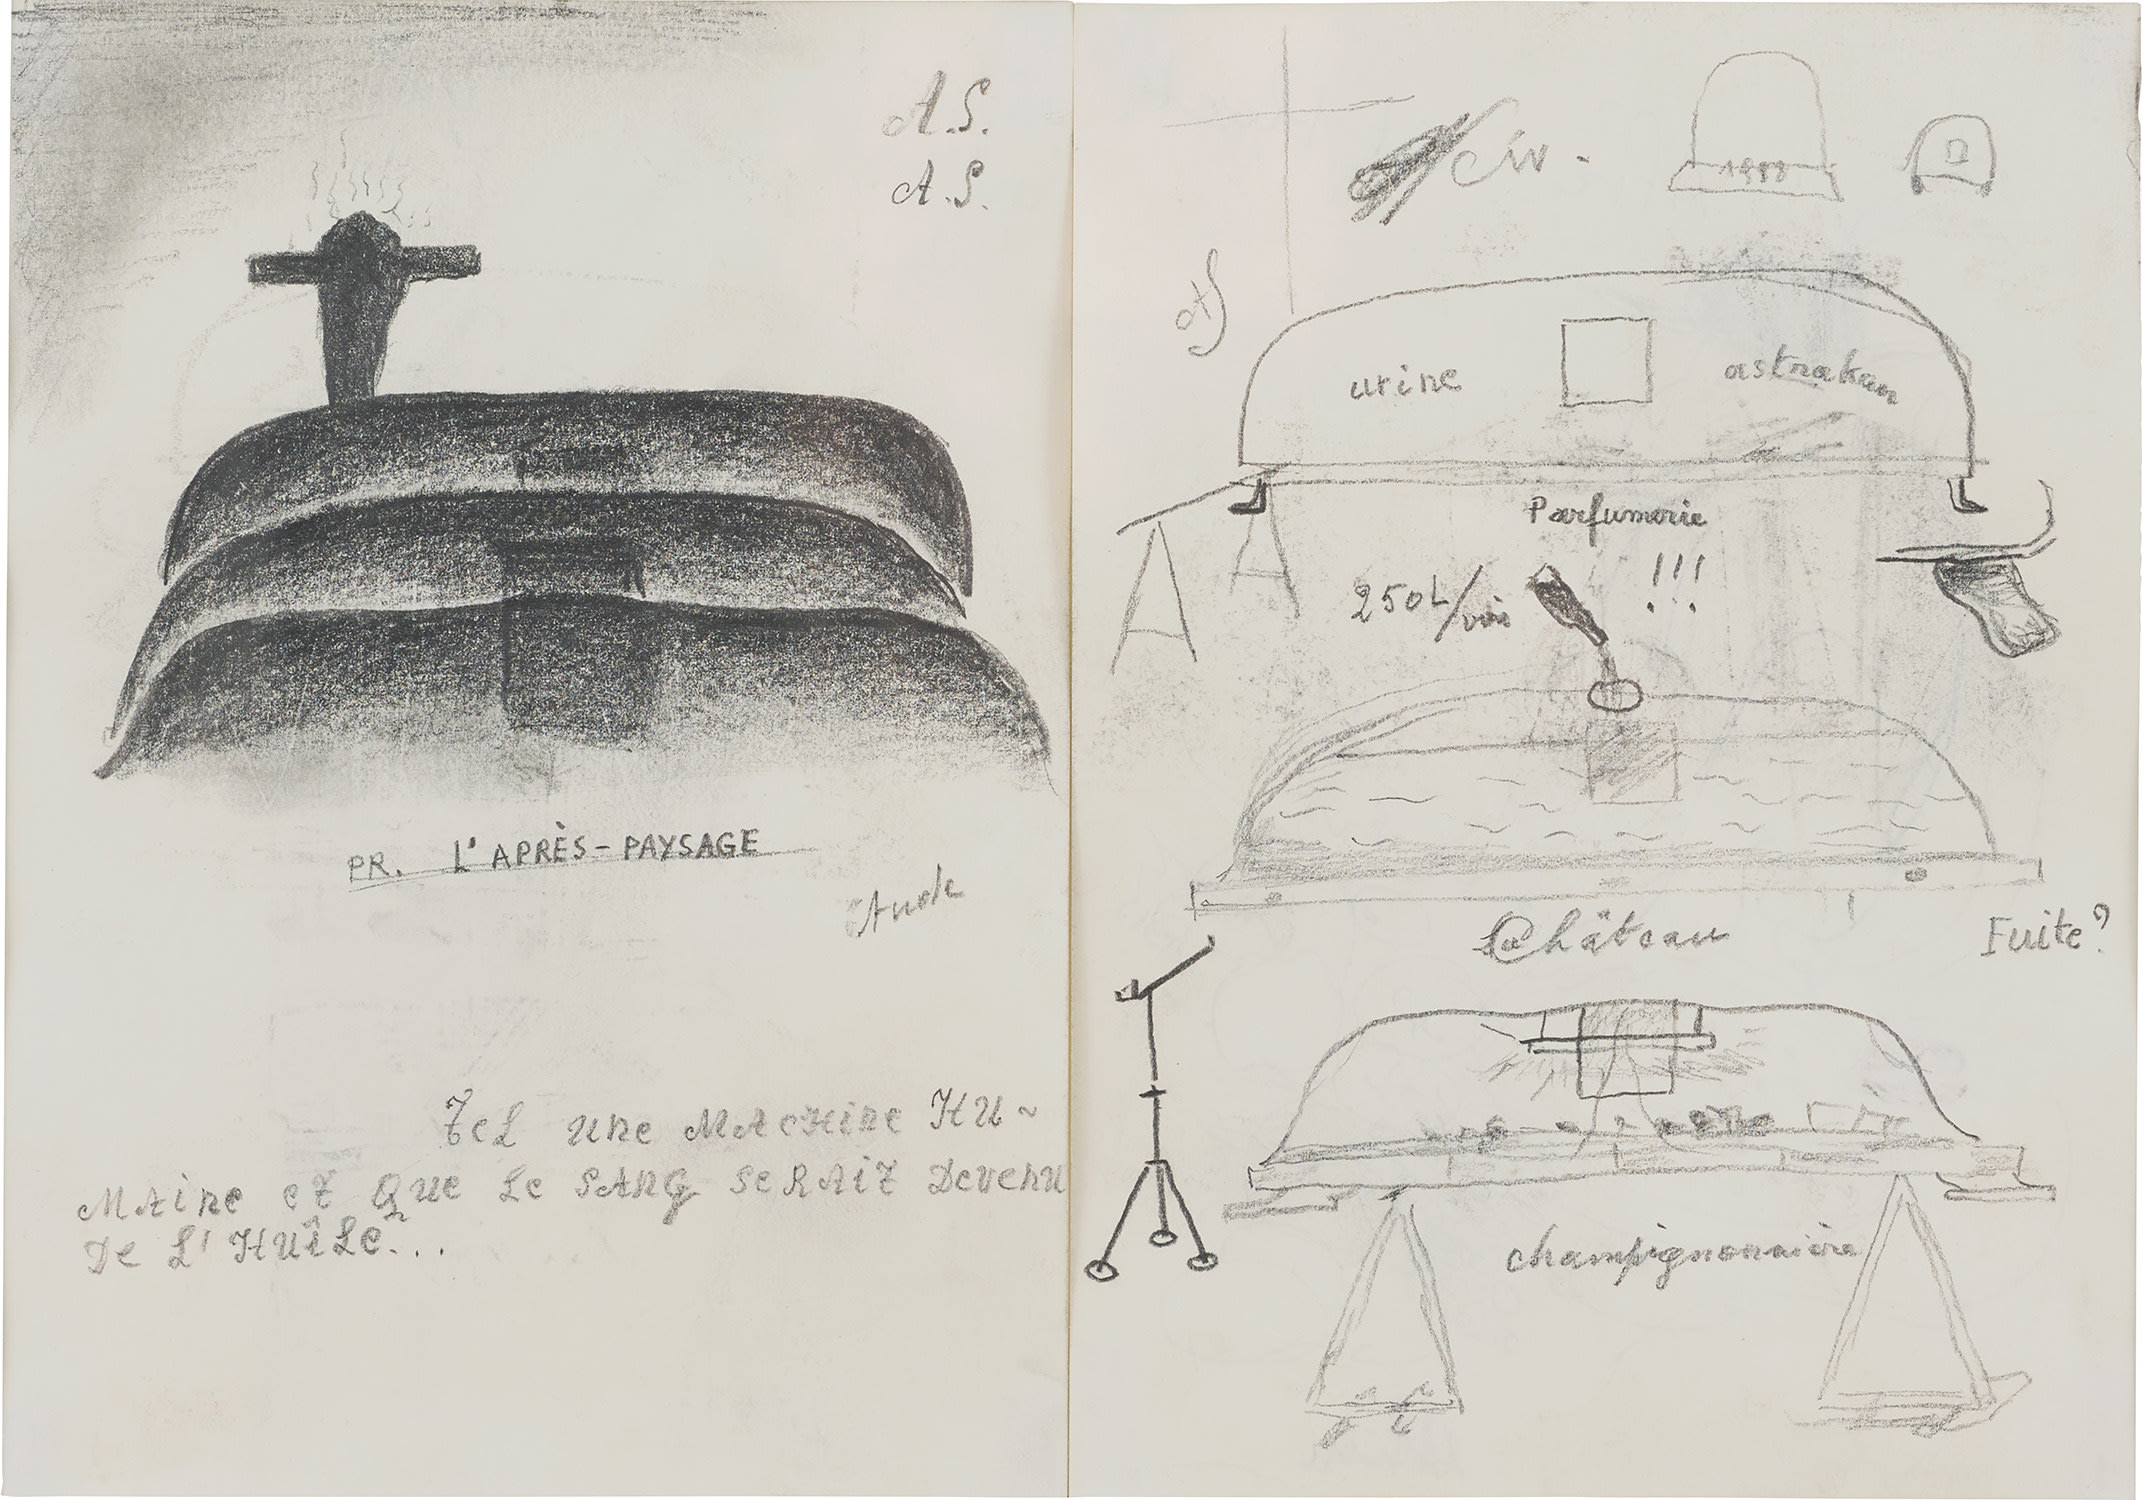 A.S.
A.S.
PR. L'APRÈS-PAYSAGE
TeL une MACHine HU~
MAine eT Que Le SANG SeRAiT Devenu
De L'HUîLe...
1988
A)
urine
astrakan
Parfumerie
250L/
!!!
Château
Fuite?
champignonnière